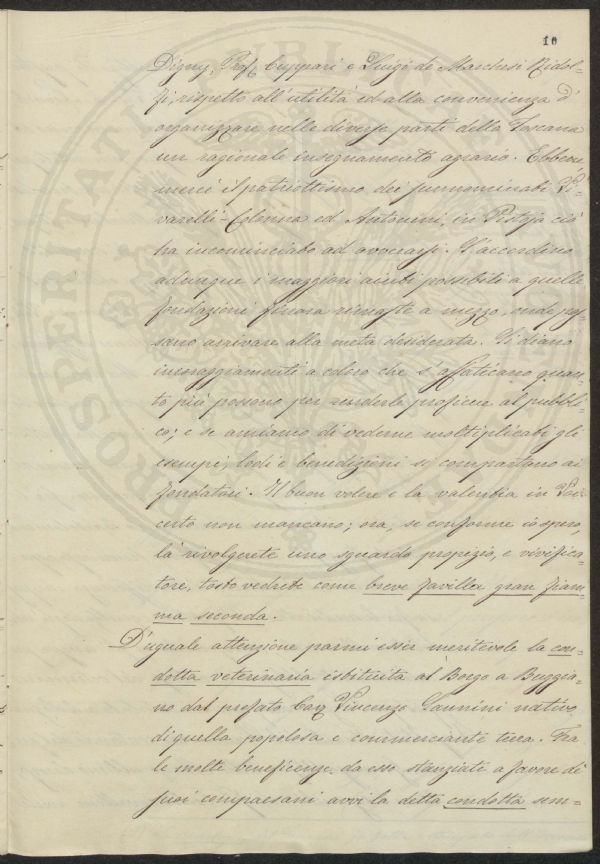 10
Digny, Prof. Cuppari e Luigi de Marchesi Ridol-
fi, rispetto all'utilità ed alla convenienza d'
organizzare nelle diverse parti della Toscana
un ragionale insegnamento agrario. Ebbene
mercè il patriottismo dei summominati Vi-
varelli-Colonna ed Antonini, in Pistoja ciò
ha incominciato ad avverarsi. S'accordino
adunque i maggiori aiuti possibili a quelle
fondazioni finora rimaste a mezzo, onde pos-
sano arrivare alla meta desiderata. Si diano
incoraggiamenti a coloro che s'affaticano quan-
to più possono per renderle proficue al pubbli-
co; e se amiamo di vederne moltiplicati gli
esempj, lodi e benedizioni si compartano ai
fondatori. Il buon volere e la valentia in Voi
certo non mancano; ora, se conforme io spero,
là rivolgerete uno sguardo propizio, e vivifica-
tore, tosto vedrete come breve favilla gran fiam-
ma seconda.
D'uguale attenzione parmi esser meritevole la con-
dotta veterinaria istituita al Borgo a Buggia-
no dal prefato Cav. Vincenzo Sannini nativo
di quella popolosa e commerciante terra. Fra
le molte beneficenze da esso stanziate a favore di
suoi compaesani avvi la detta condotta sem-
PROSPERITATI